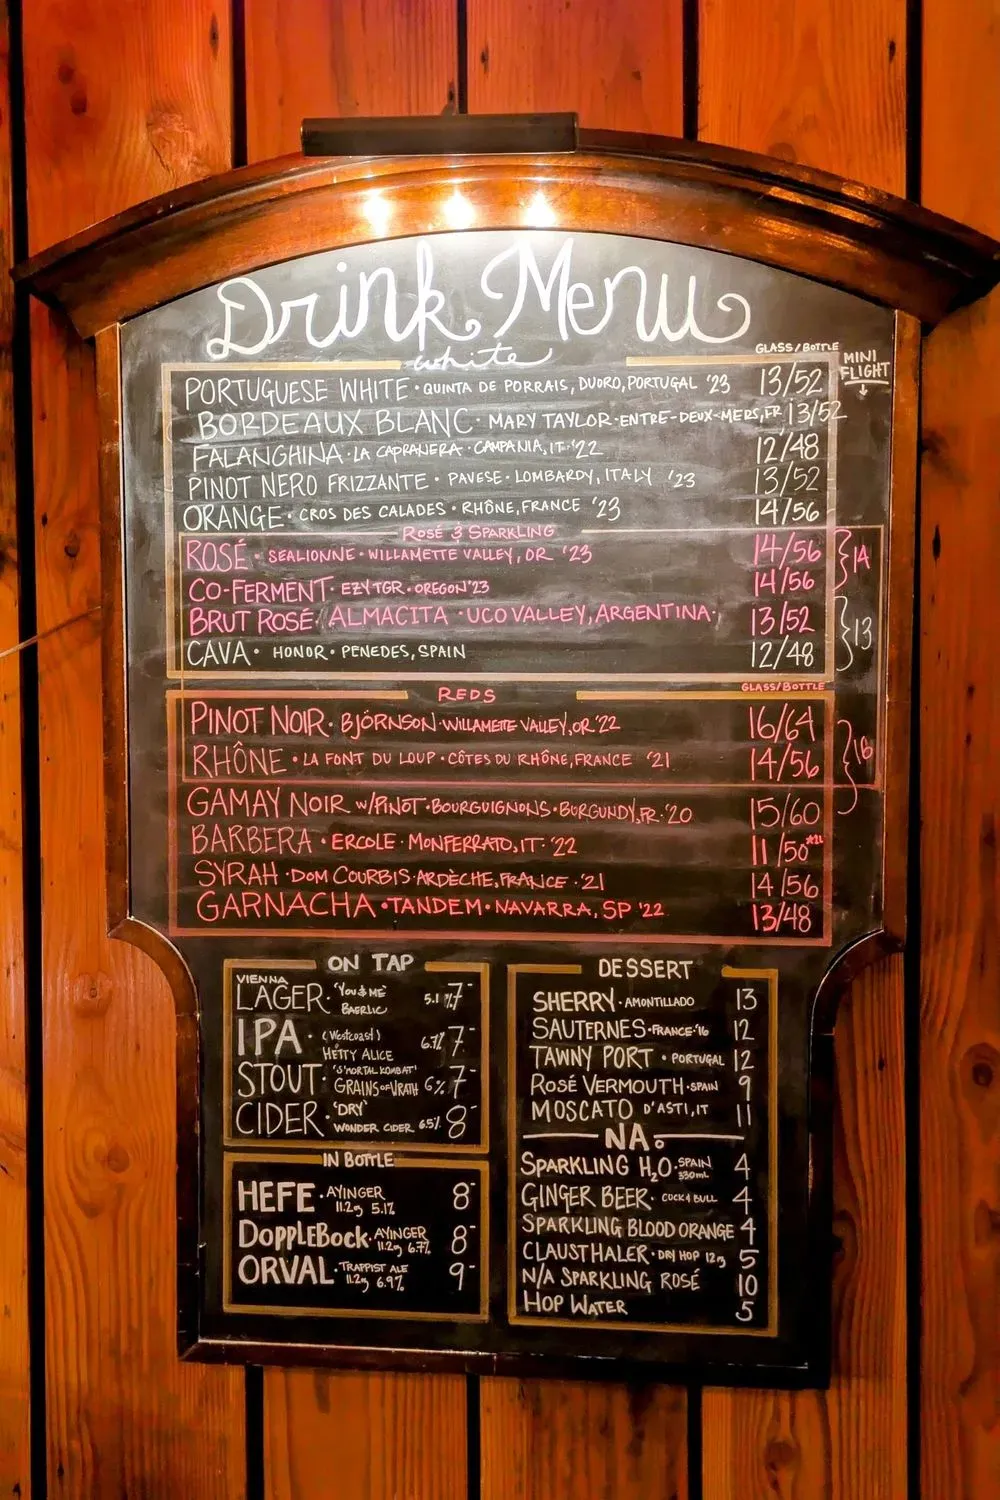 Drink Menu
white
GLASS/BOTTLE
MINI FLIGHT ↓
PORTUGUESE WHITE · QUINTA DE PORRAIS, DUORO, PORTUGAL '23 13/52
BORDEAUX BLANC · MARY TAYLOR · ENTRE-DEUX-MERS, FR 13/52
FALANGHINA · LA CAPRANERA · CAMPANIA, IT · '22 12/48
PINOT NERO FRIZZANTE · PAVESE · LOMBARDY, ITALY '23 13/52
ORANGE · CROS DES CALADES · RHÔNE, FRANCE '23 14/56
ROSÉ & SPARKLING
ROSÉ · SEALIONNE · WILLAMETTE VALLEY, OR '23 14/56
14
CO-FERMENT · EZY TGR · OREGON '23 14/56
BRUT ROSÉ · ALMACITA · UCO VALLEY, ARGENTINA · 13/52
13
CAVA · HONOR · PENEDES, SPAIN 12/48
REDS
GLASS/BOTTLE
PINOT NOIR · BJÖRNSON · WILLAMETTE VALLEY, OR '22 16/64
RHÔNE · LA FONT DU LOUP · CÔTES DU RHÔNE, FRANCE '21 14/56
GAMAY NOIR W/PINOT · BOURGUIGNONS · BURGUNDY, FR · '20 15/60
BARBERA · ERCOLE · MONFERRATO, IT · '22 11/50
SYRAH · DOM COURBIS · ARDÈCHE, FRANCE · '21 14/56
GARNACHA · TANDEM · NAVARRA, SP '22 13/48
ON TAP
VIENNA
LAGER · 'YOU & ME' BAERLIC 5.1% 7-
IPA · (Westcoast) HETTY ALICE 6.7% 7-
STOUT · 'S'MORTAL KOMBAT' GRAINS OF WRATH 6% 7-
CIDER · 'DRY' WONDER CIDER 6.5% 8-
IN BOTTLE
HEFE · AYINGER 11.2oz 5.1% 8-
DOPPLEBOCK · AYINGER 11.2oz 6.7% 8-
ORVAL · TRAPPIST ALE 11.2oz 6.9% 9-
DESSERT
SHERRY · AMONTILLADO 13
SAUTERNES · FRANCE · '16 12
TAWNY PORT · PORTUGAL 12
ROSÉ VERMOUTH · SPAIN 9
MOSCATO D'ASTI, IT 11
NA.
SPARKLING H2O · SPAIN 330mL 4
GINGER BEER · COCK & BULL 4
SPARKLING BLOOD ORANGE 4
CLAUSTHALER · DRY HOP 12oz 5
N/A SPARKLING ROSÉ 10
HOP WATER 5